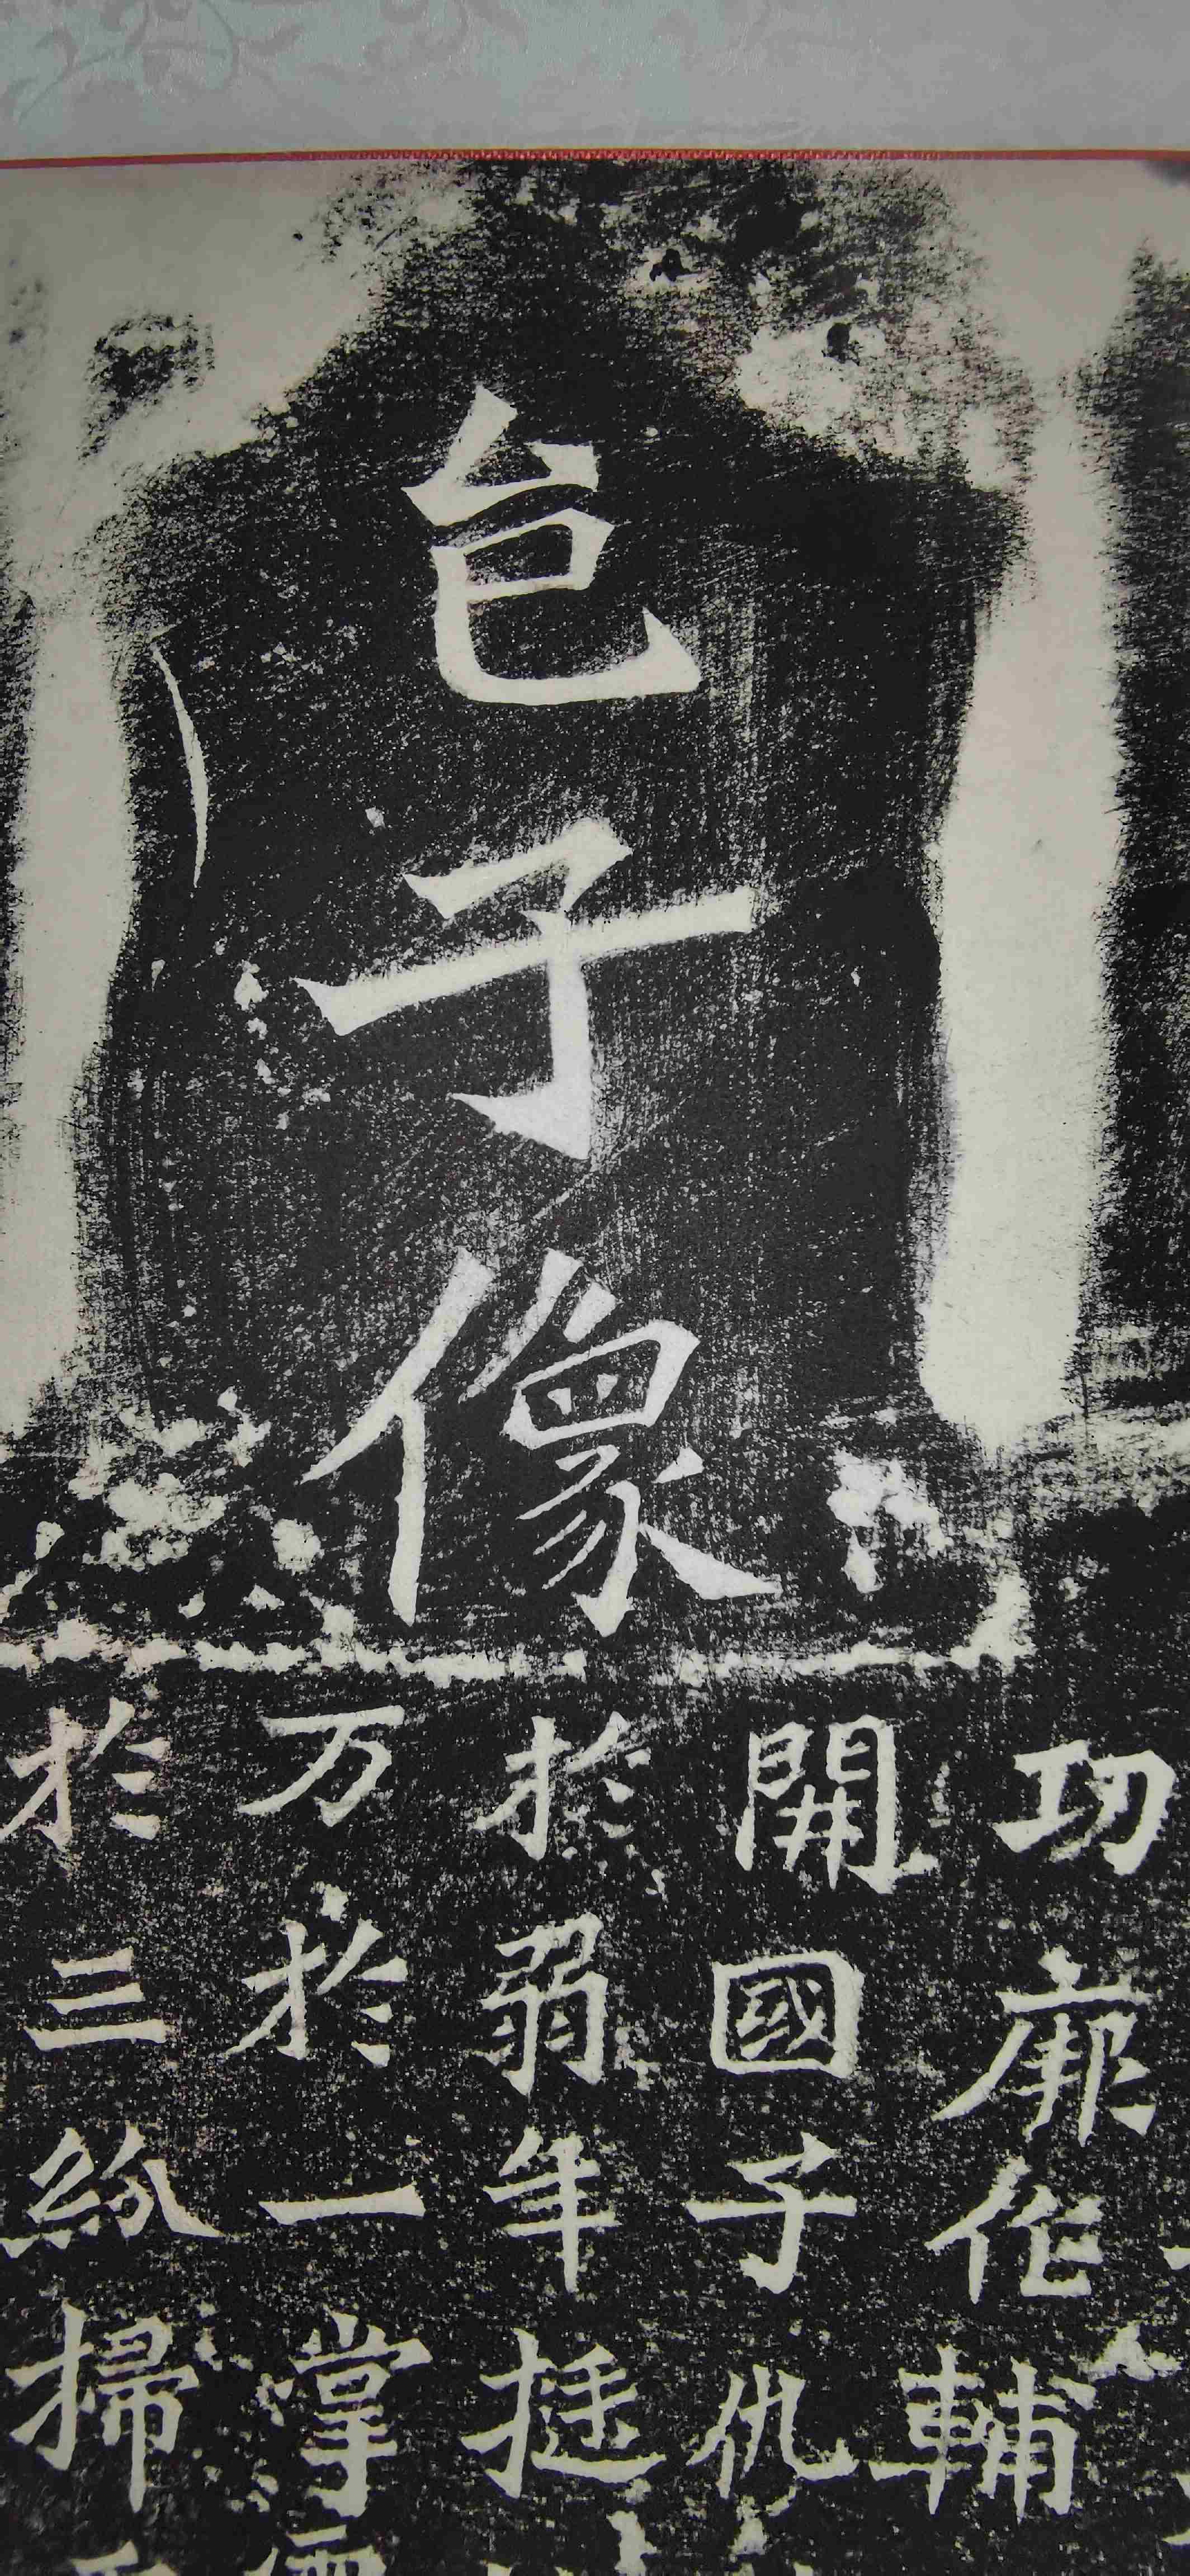 邑子像
功廓作輔
開國子仇
於弱年挺
万於一掌
於三紛掃